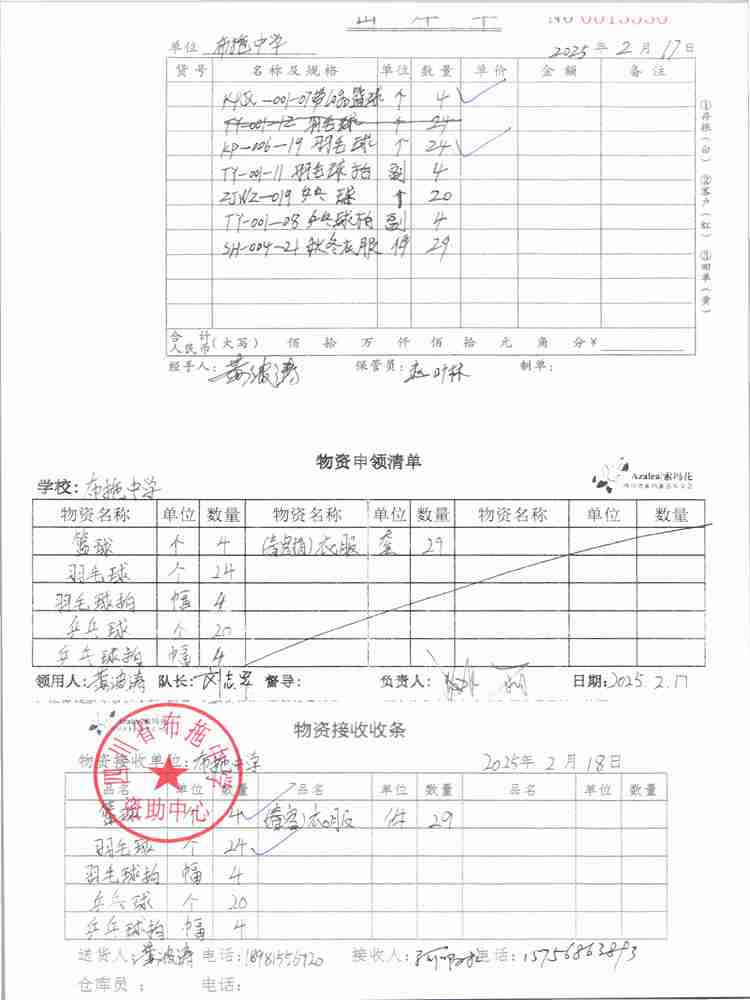 出库单
No 0015530
单位 布拖中学 2025年2月17日
货号 名称及规格 单位 数量 单价 金额 备注
篮球 个 4
TY-001-12 羽毛球 个 24
KP-006-19 羽毛球 个 24
TY-001-11 羽毛球拍 副 4
ZJWZ-019 乒乓球 个 20
TY-001-08 乒乓球拍 副 4
SH-004-21 秋冬衣服 件 29
①存根(白) ②客户(红) ③回单(黄)
合计人民币(大写) 佰 拾 万 仟 佰 拾 元 角 分¥
经手人:黄波涛 保管员: 制单:
物资申领清单
Azalea|索玛花
学校:布拖中学
物资名称 单位 数量 物资名称 单位 数量 物资名称 单位 数量
篮球 个 4 衣服 套 29
羽毛球 个 24
羽毛球拍 幅 4
乒乓球 个 20
乒乓球拍 幅 4
领用人:黄波涛 队长: 督导: 负责人: 日期:2025.2.17
Azalea|索玛花
物资接收收条
物资接收单位:布拖中学 2025年2月18日
四川省布拖中学
资助中心
品名 单位 数量 品名 单位 数量 品名 单位 数量
篮球 个 4 衣服 件 29
羽毛球 个 24
羽毛球拍 幅 4
乒乓球 个 20
乒乓球拍 幅 4
送货人:黄波涛 电话:18981556920 接收人: 电话:15756863893
仓库员: 电话: